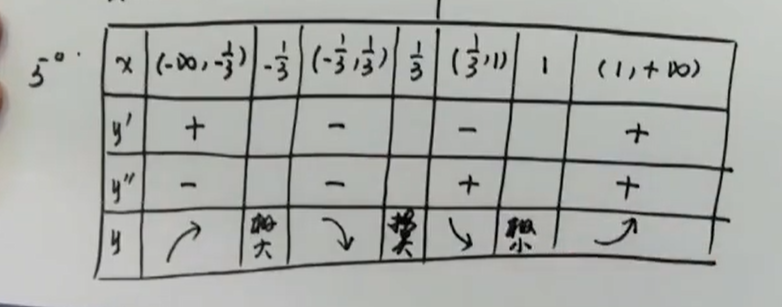 5°.
x (-∞, -1/3) -1/3 (-1/3, 1/3) 1/3 (1/3, 1) 1 (1, +∞)
y' + - - +
y'' - - + +
y ↗ 极大 ↘ 拐点 ↘ 极小 ↗